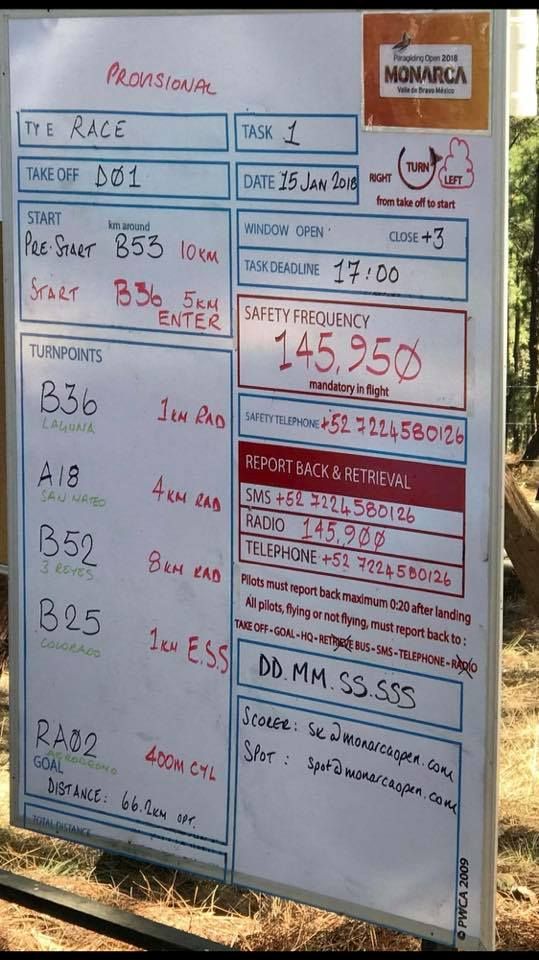 PROVISIONAL
Paragliding Open 2018
MONARCA
Valle de Bravo México
TY E RACE
TASK 1
TAKE OFF DØ1
DATE 15 JAN 2018
RIGHT TURN LEFT
from take off to start
START
km around
PRE-START B53 10KM
START B36 5KM
ENTER
WINDOW OPEN CLOSE +3
TASK DEADLINE 17:00
SAFETY FREQUENCY
145,95Ø
mandatory in flight
SAFETY TELEPHONE +52 7224580126
REPORT BACK & RETRIEVAL
SMS +52 7224580126
RADIO 145,9ØØ
TELEPHONE +52 7224580126
Pilots must report back maximum 0:20 after landing
All pilots, flying or not flying, must report back to :
TAKE OFF - GOAL - HQ - RETRIEVE BUS - SMS - TELEPHONE - RADIO
DD.MM.SS.SSS
SCORER: sk@monarcaopen.com
SPOT : spot@monarcaopen.com
TURNPOINTS
B36 1KM RAD
LAGUNA
A18 4KM RAD
SAN MATEO
B52 8KM RAD
3 REYES
B25 1KM E.S.S
COLORADO
RAØ2 400M CYL
AERODROMO
GOAL
DISTANCE: 66.2KM OPT.
TOTAL DISTANCE
© PWCA 2009